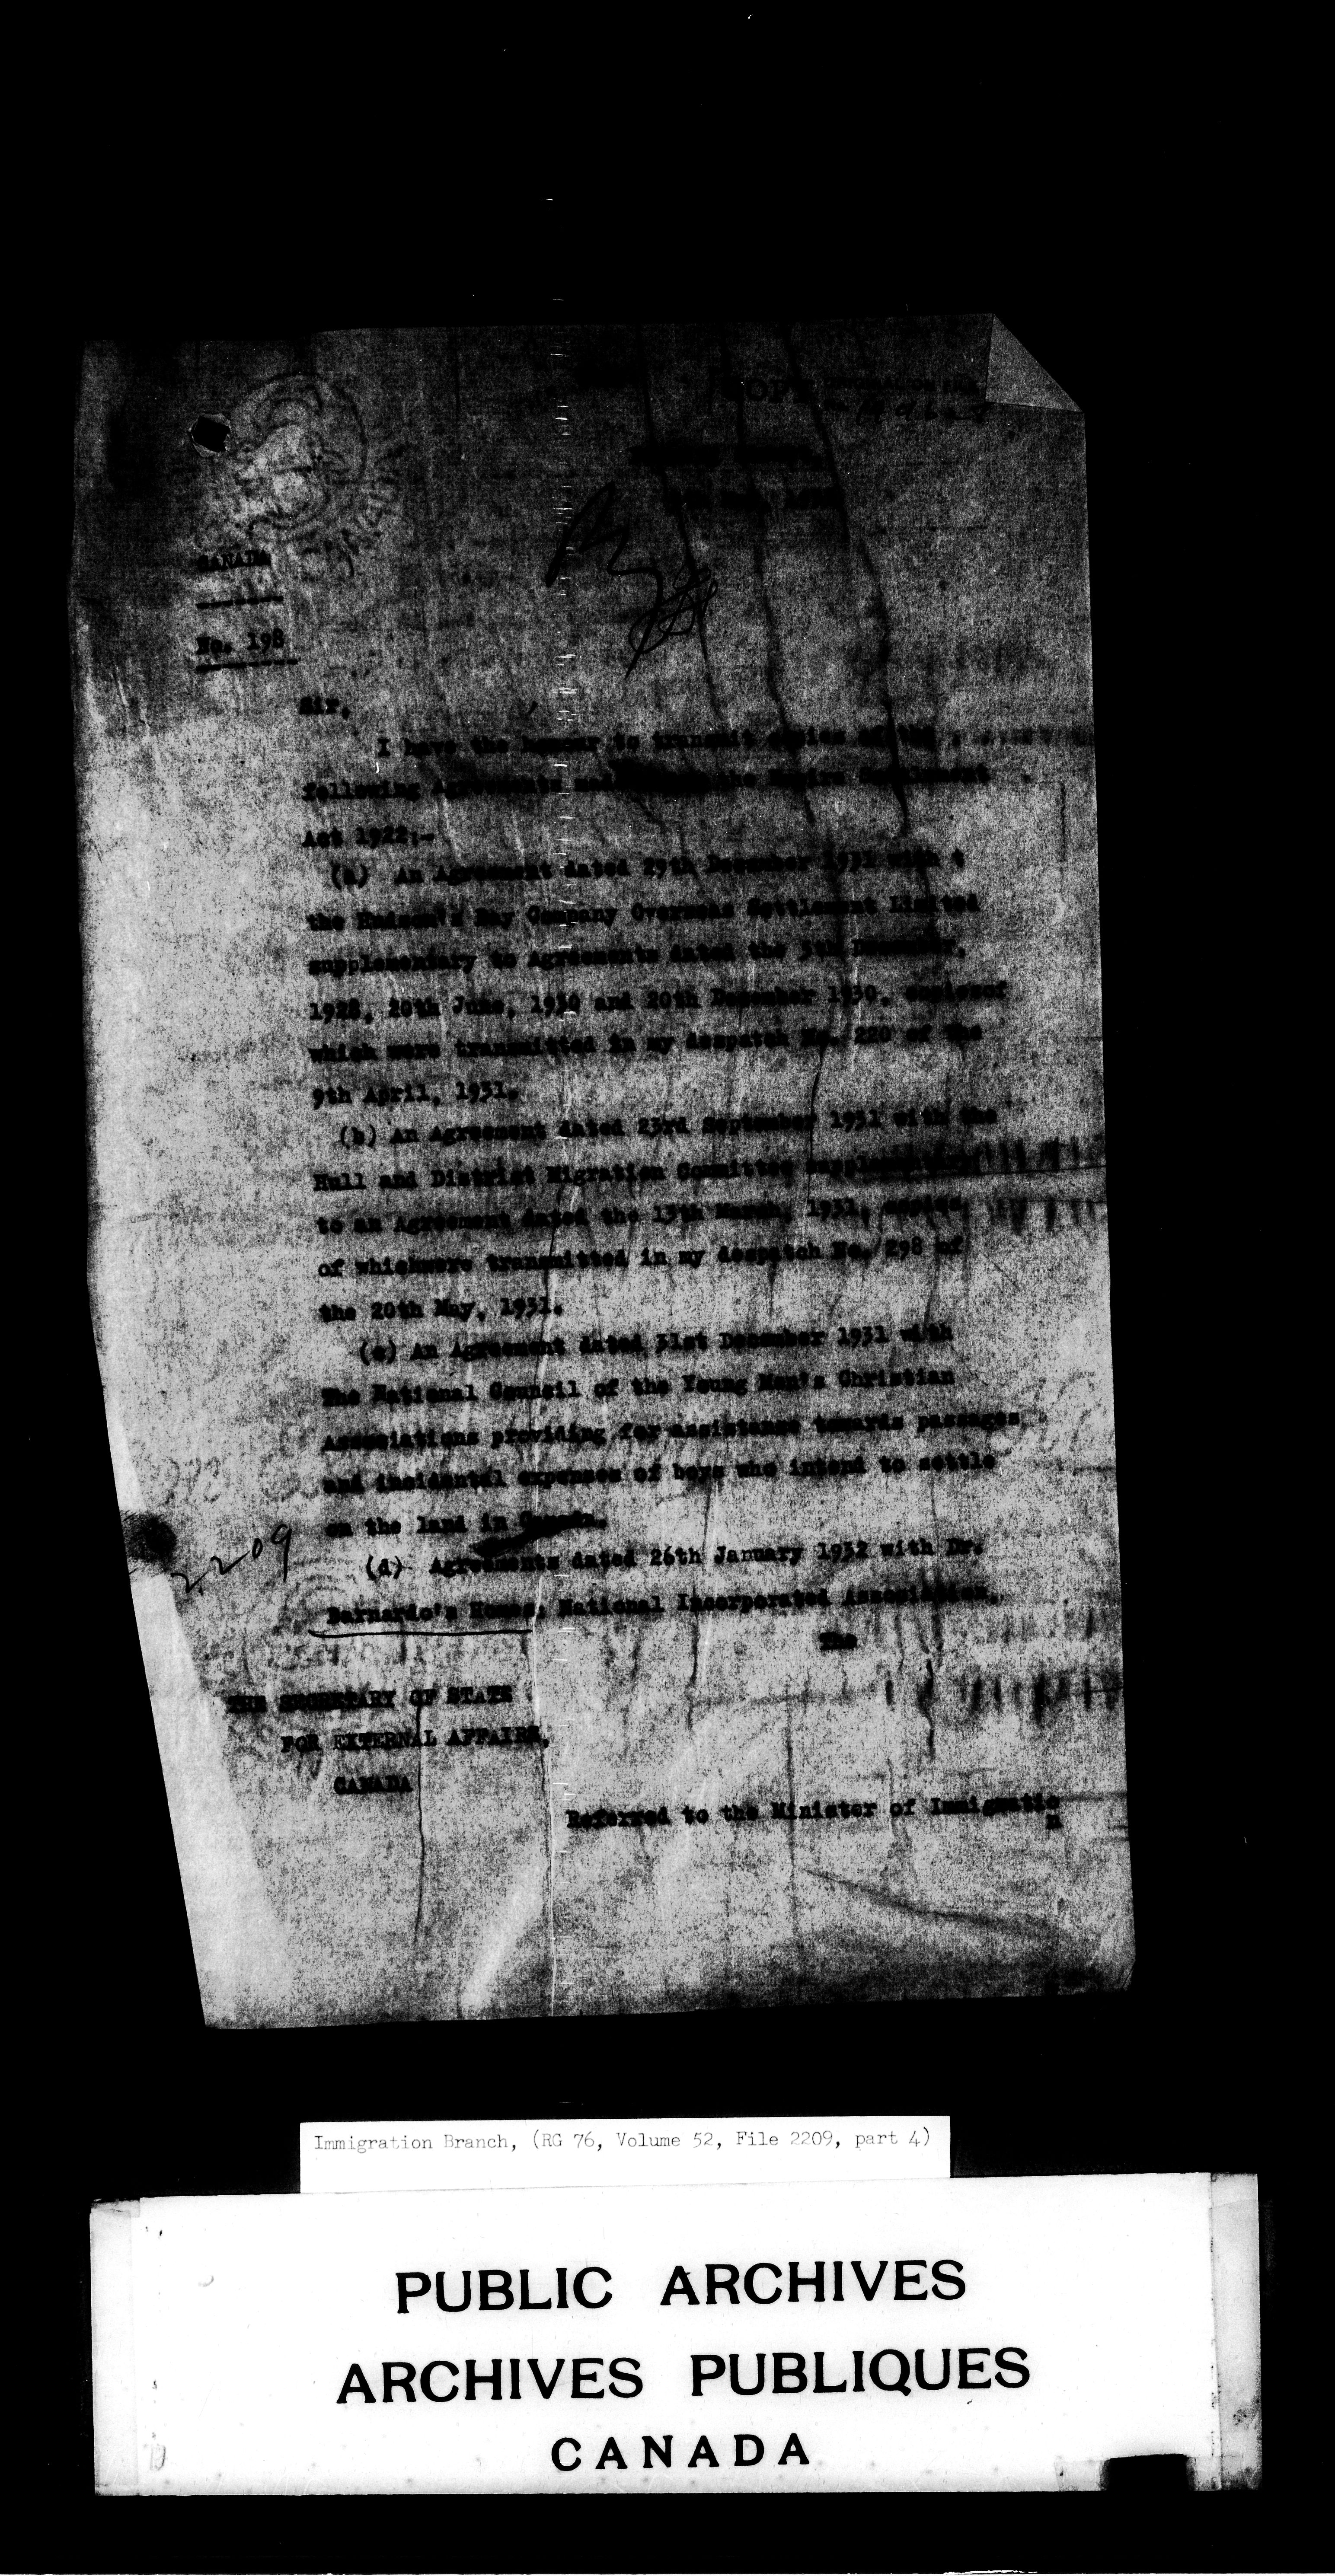 COPY
CANADA
No. 198
Sir,
I have the honour to transmit copies of the
following Agreements made the Empire Settlement
Act 1922:-
(a) An Agreement dated 29th December 1931 with
the Hudson's Bay Company Overseas Settlement Limited
supplementary to Agreements dated the 5th December,
1928, 20th June, 1930 and 20th December 1930, copiesof
which were transmitted in my despatch No. 220 of the
9th April, 1931.
(b) An Agreement dated 23rd September 1931 with the
Hull and District Migration Committee supplementary
to an Agreement dated the 13th March, 1931, copies
of whichwere transmitted in my despatch No. 298 of
the 20th May, 1931.
(c) An Agreement dated 31st December 1931 with
The National Council of the Young Men's Christian
Associations providing for assistance towards passages
and incidental expenses of boys who intend to settle
on the land in Canada.
(d) Agreements dated 26th January 1932 with Dr.
Barnardo's Homes: National Incorporated Association.
The
2209
THE SECRETARY OF STATE
FOR EXTERNAL AFFAIRS,
CANADA
Referred to the Minister of Immigration
Immigration Branch, (RG 76, Volume 52, File 2209, part 4)
PUBLIC ARCHIVES
ARCHIVES PUBLIQUES
CANADA